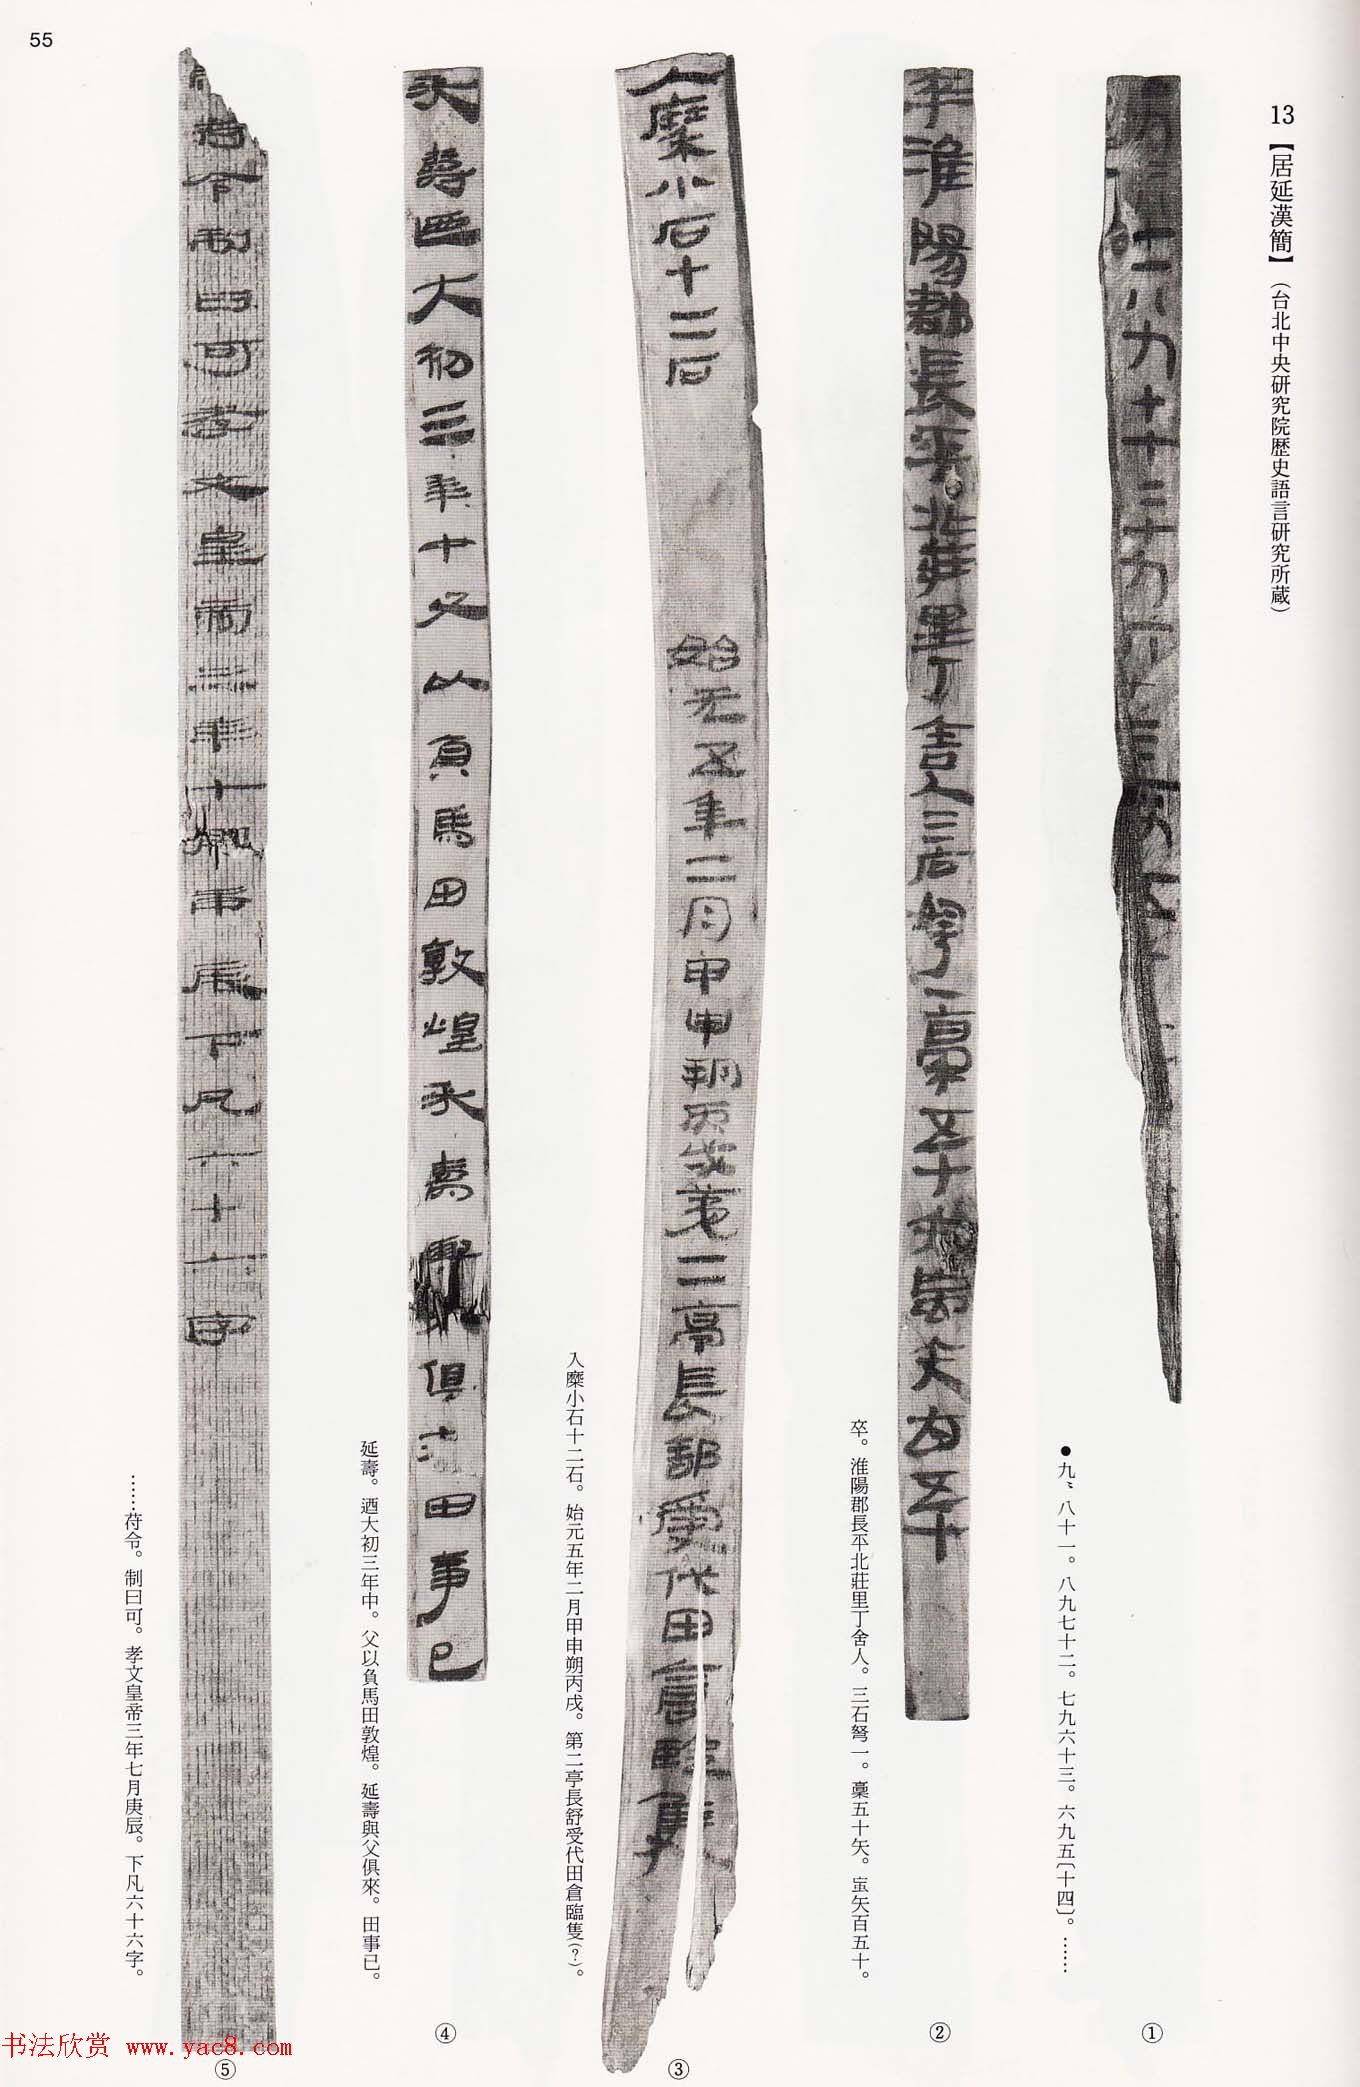 55
13【居延漢簡】（台北中央研究院歷史語言研究所蔵）
●九、八十一。八九七十二。七九六十三。六九五〔十四〕。……
①
卒。淮陽郡長平北莊里丁舍人。三石弩一。稾五十矢。䖟矢百五十。
②
入糜小石十二石。始元五年二月甲申朔丙戌。第二亭長舒受代田倉臨隻(？)。
③
延壽。迺大初三年中。父以負馬田敦煌。延壽與父俱來。田事已。
④
……苻令。制曰可。孝文皇帝三年七月庚辰。下凡六十六字。
⑤
书法欣赏 www.yac8.com